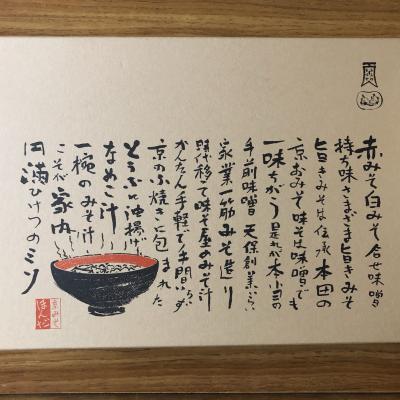 赤みそ白みそ合せ味噌
持ち味さまざま旨きみそ
旨きみそは伝承本田の
京おみそ味そは味噌でも
一味ちがう是れが本小司の
手前味噌天保創業いらい
家業一筋みそ造り
時代移りて味そ屋のみそ汁
かんたん手軽で手間いらず
京のふ焼きに包まれた
とうふに油揚げ
なめこ汁
一椀のみそ汁
こそが家内
円満ひけつのミソ
京みそ
ほんだ